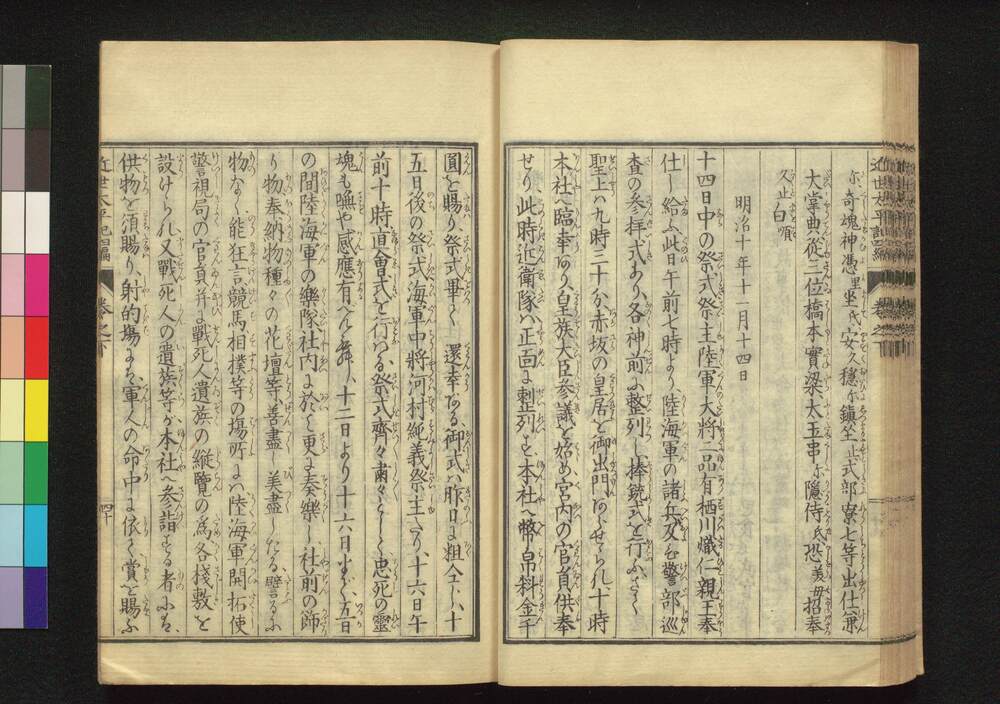 尓、奇魂神憑里坐氐安久穏尓鎮坐止式部寮七等出仕兼
大掌典従三位橋本實梁、太玉串尓隠侍氐恐美毋招奉
久止白須
明治十年十一月十四日
十四日中の祭式祭主陸軍大将二品有栖川熾仁親王奉
仕し給ふ此日午前七時より陸海軍の諸兵及ひ警部巡
査の参拝式あり、各神前に整列し捧銃式を行ふ、さて
聖上ハ九時三十分赤坂の皇居を御出門あらせられ十時
本社へ臨幸あり、皇族大臣参議を始め、宮内の官員供奉
せり、此時近衛隊ハ正面に整列す、本社へ幣帛料金千
圓を賜り、祭式畢て 還幸ある、御式ハ昨日に粗仝しハ、十
五日後の祭式海軍中将河村純義祭主たり、十六日午
前十時直會式を行はる、祭式齊々粛々として忠死の靈
魂も嘸や感應有へんと舞ハ、十二日より十六日まで五日
の間陸海軍の樂隊社内に於て更に奏樂し社前の飾
り物奉納物種々の花壇等善盡し美盡したる、譬るに
物なく能狂言、競馬相撲等の場所にハ陸海軍開拓使
警視局の官員并に戦死人遺族の縦覧の為各棧敷を
設けられ又戦死人の遺族等が本社へ参詣する者にハ、
供物を須賜り、射的場にて軍人の命中に依て賞を賜ふ
近世太平記四編 巻之下 四十